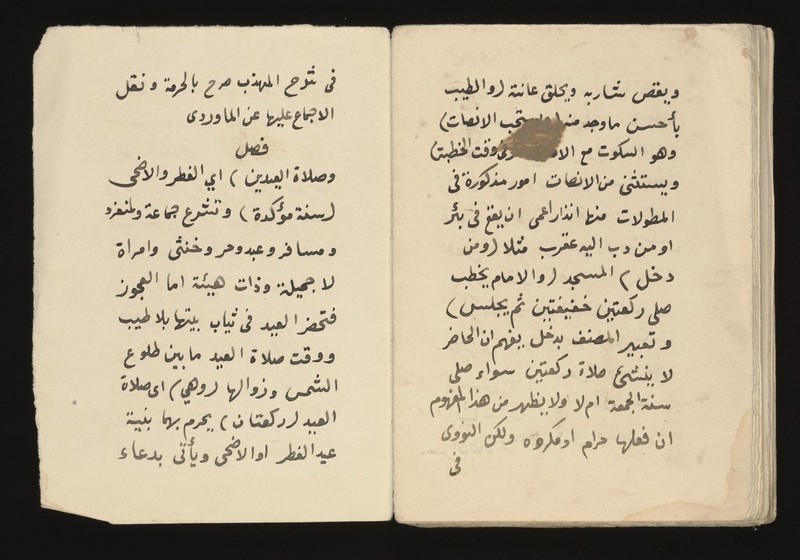 ويقص شاربه ويحلق عانته (والطيب
بأحسن ما وجد منه ويستحب الانصات)
وهو السكوت مع الاصغاء وقت الخطبة)
ويستثنى من الانصات امور مذكورة في
المطولات منها انذار اعمى ان يقع في بئر
او من دب اليه عقرب مثلا (ومن
دخل) المسجد (والامام يخطب
صلى ركعتين خفيفتين ثم يجلس)
وتعبير المصنف بدخل يفهم ان الحاضر
لا ينشئ صلاة ركعتين سواء صلى
سنة الجمعة ام لا ولا يظهر من هذا المفهوم
ان فعلها حرام او مكروه ولكن النووى
في
في شرح المهذب صرح بالحرمة ونقل
الاجماع عليها عن الماوردى
فصل
وصلاة العيدين) اي الفطر والاضحى
(سنة مؤكدة) وتشرع جماعة ولمنفرد
ومسافر وعبد وحر وخنثى وامراة
لا جميلة وذات هيئة اما العجوز
فتحضر العيد في ثياب بيتها بلا طيب
ووقت صلاة العيد ما بين طلوع
الشمس وزوالها (وهي) اى صلاة
العيد (ركعتان) يحرم بهما بنية
عيد الفطر او الاضحى ويأتى بدعاء